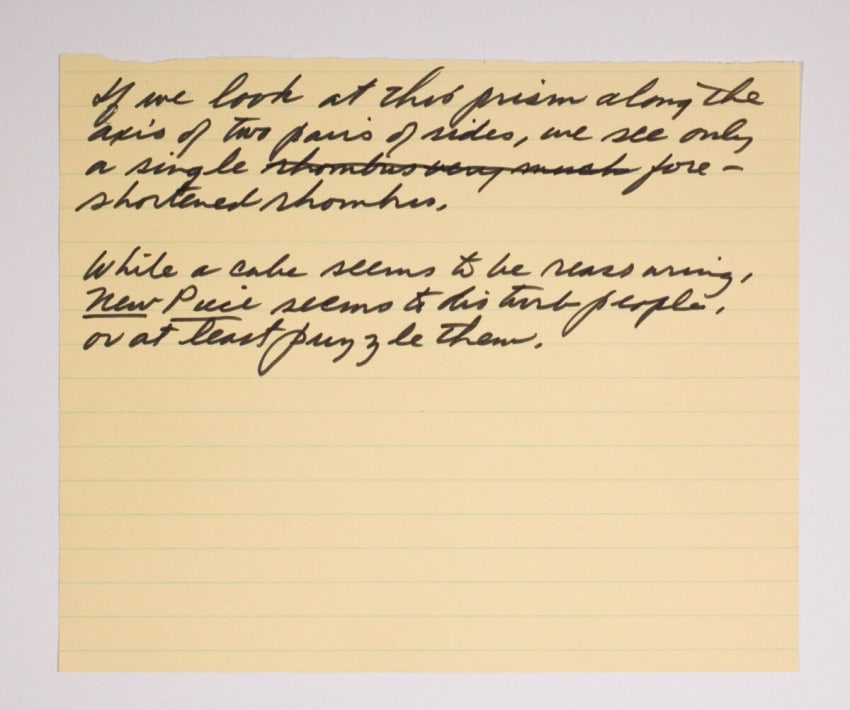 If we look at this prism along the
axis of two pairs of sides, we see only
a single rhombus very much fore-
shortened rhombus.
While a cube seems to be reassuring,
New Piece seems to disturb people,
or at least puzzle them.